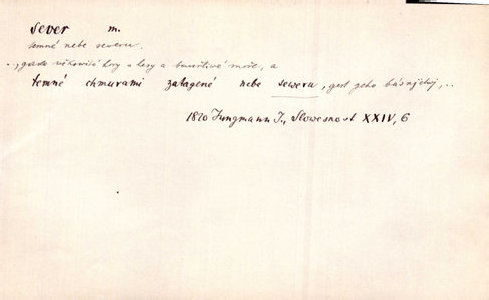 Sever m.
temné nebe seweru.
..., gako wěkowité hory a lesy a bauřliwé moře, a
temné chmurami zatagené nebe seweru, gest geho básnjctwj, ..
1820 Jungmann J., Slowesnost XXIV, 6